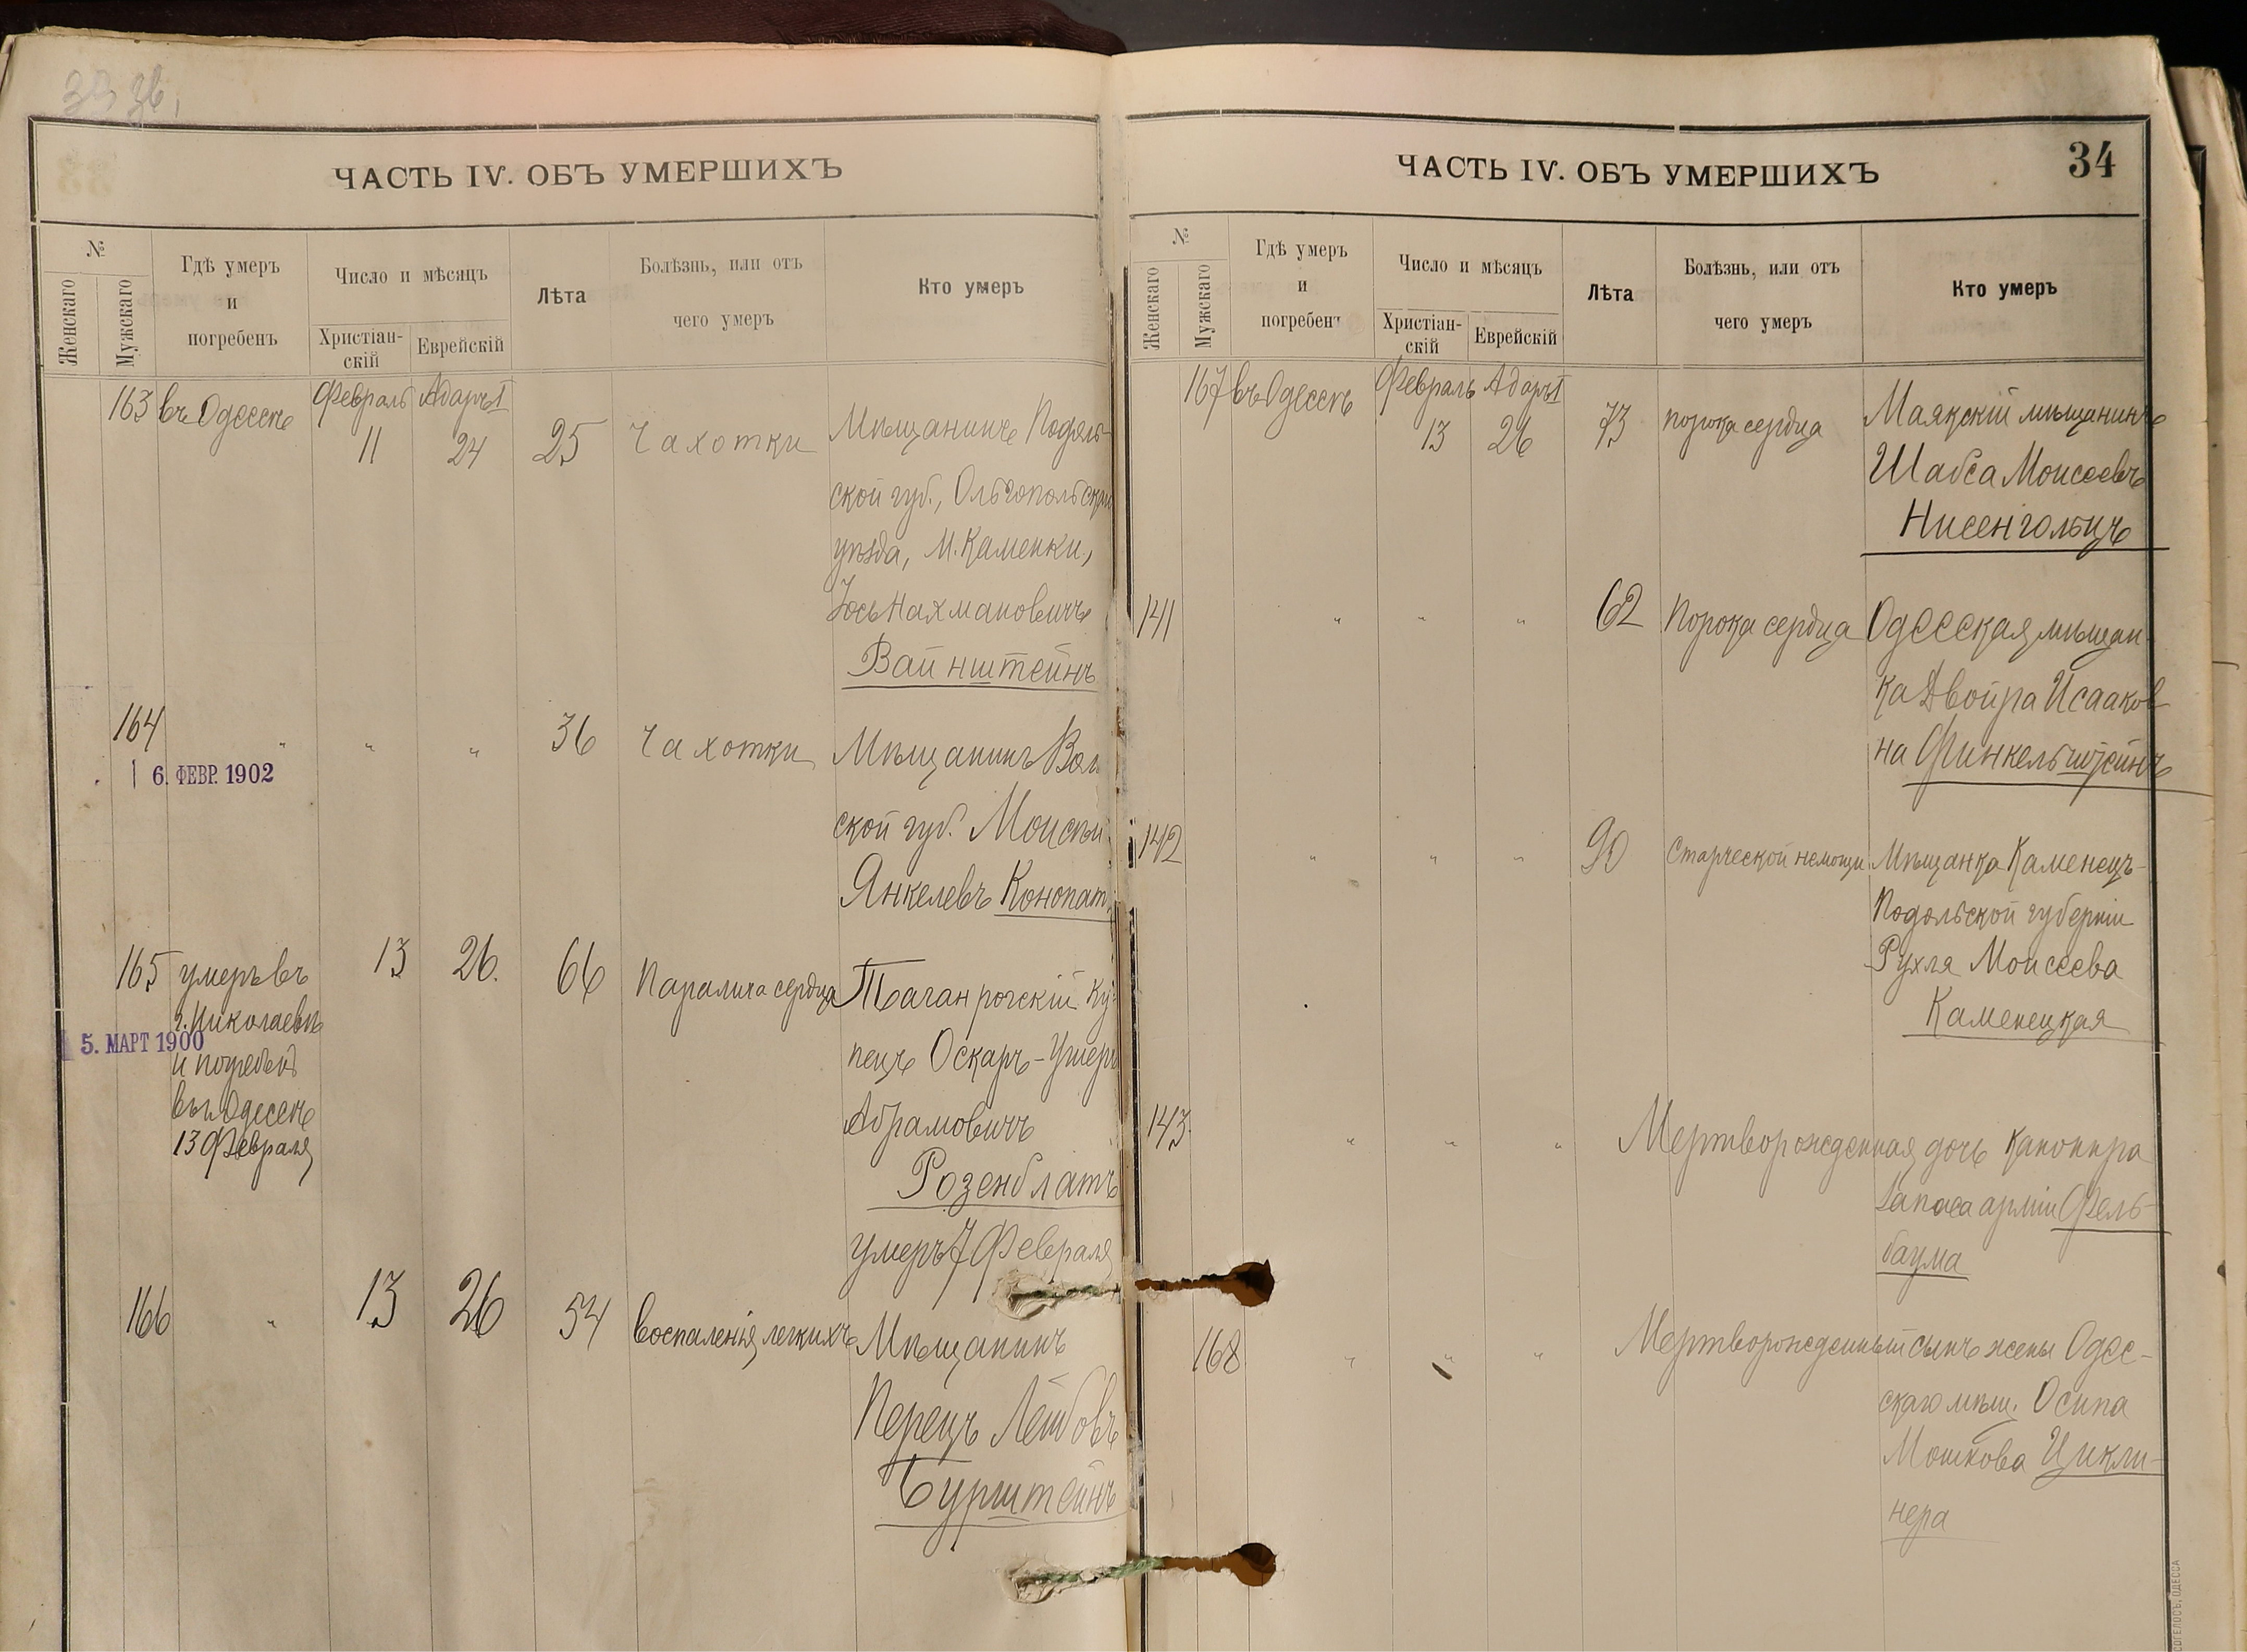 ЧАСТЬ IV. ОБЪ УМЕРШИХЪ
№
Женскаго
Мужскаго
Гдѣ умеръ
и
погребенъ
Число и мѣсяцъ
Христіан-
скій
Еврейскій
Лѣта
Болѣзнь, или отъ
чего умеръ
Кто умеръ
163 въ Одессѣ Февраль Адаръ I
11 24 25 Чахотки Мѣщанинъ Подоль-
ской губ., Ольгопольскаго
уѣзда, м. Каменки,
Іось Нахмановичъ
Вайнштейнъ
164 " " " 36 Чахотки Мѣщанинъ Вол
6. ФЕВР. 1902
ской губ. Моисѣй
Янкелевъ Конопат
165 умеръ въ 13 26. 66 Паралича сердца Таганрогскій ку-
г. Николаевѣ
5. МАРТ 1900
и погребенъ
въ г. Одессѣ
13 Февраля
пецъ Оскаръ-Ушеръ
Абрамовичъ
Розенблатъ
умеръ 7 Февраля
166 " 13 26 54 Воспаленія легкихъ Мѣщанинъ
Перецъ Лейбовъ
Бурштейнъ
ЧАСТЬ IV. ОБЪ УМЕРШИХЪ
34
№
Женскаго
Мужскаго
Гдѣ умеръ
и
погребенъ
Число и мѣсяцъ
Христіан-
скій
Еврейскій
Лѣта
Болѣзнь, или отъ
чего умеръ
Кто умеръ
167 въ Одессѣ Февраль Адаръ I
13 26 73 порока сердца Маякскій мѣщанинъ
Шабса Моисеевъ
Нисенгольцъ
141 " " " 62 Порока сердца Одесская мѣщан-
ка Двойра Исааков-
на Финкельштейнъ
142 " " " 90 Старческой немощи Мѣщанка Каменецъ-
Подольской губерніи
Рухля Моисеева
Каменецкая
143 " " " Мертворожденная дочь канонира
запаса арміи Фель-
баума
168 " " " Мертворожденный сынъ жены Одес-
скаго мѣщ. Осипа
Мошкова Цикли-
нера